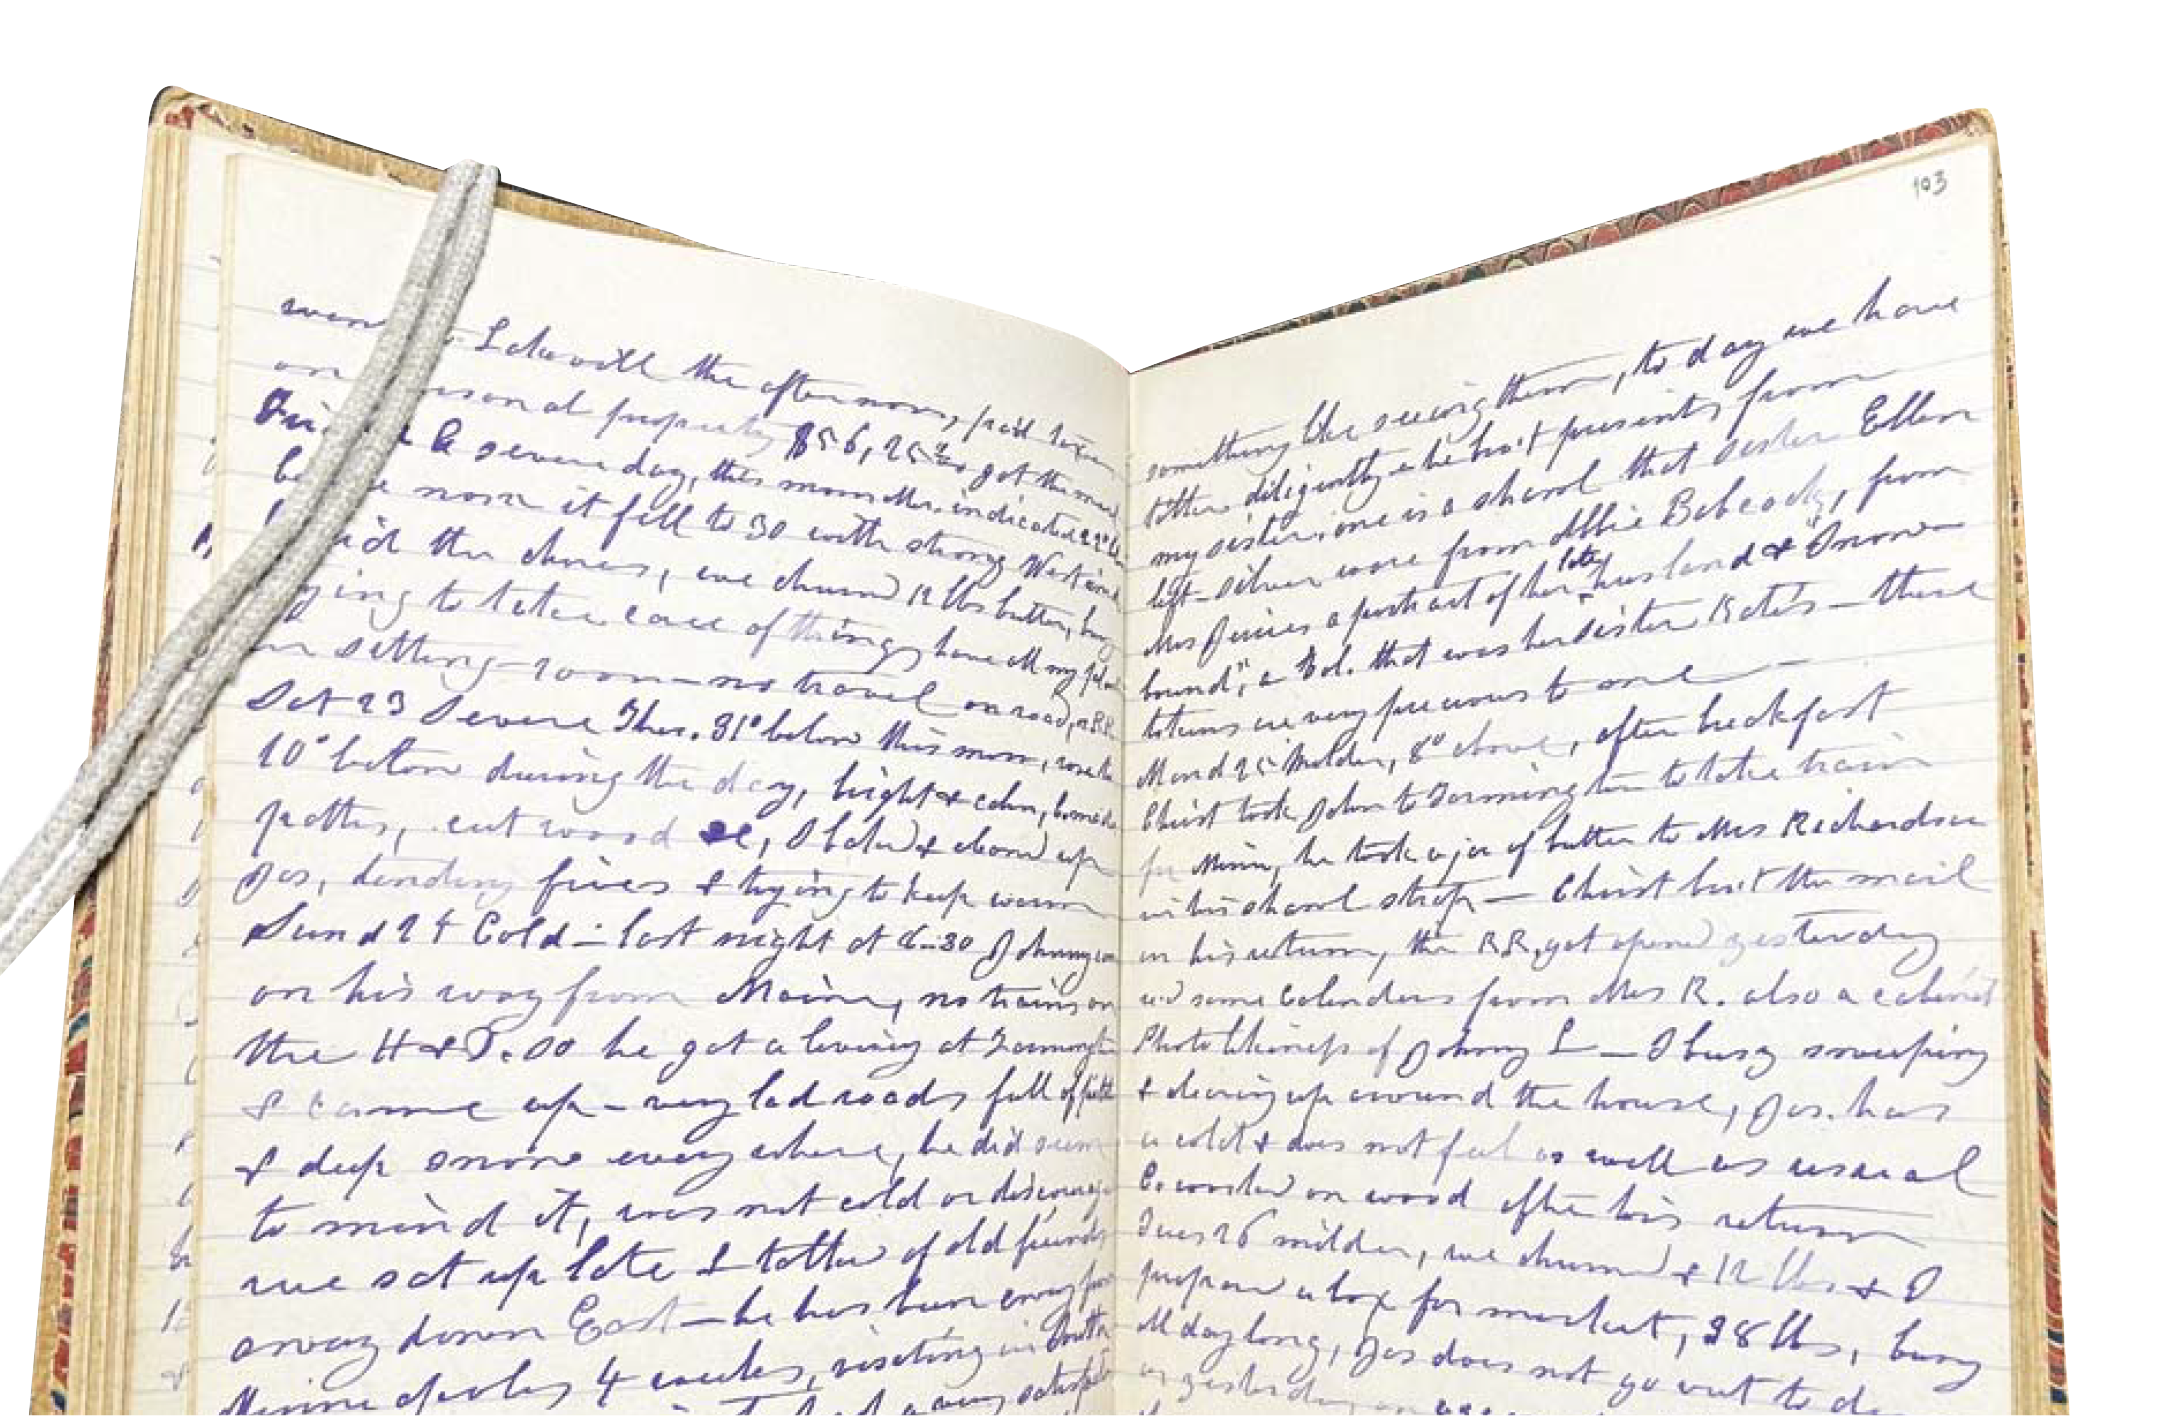 went Lakeville the afternoon, paid taxes
on personal property $56,25 got the mail
Fri a severe day, this morn Ther. indicated 22°
noon it fell to 30 with strong West wind
did the chores, we churned 12 lbs butter, busy
trying to take care of things, have all my plants
in sitting-room - no travel on road, or RR
Sat 23 Severe Ther. 31° below this morn, rose to
10° below during the day, bright & calm, C. made
paths, cut wood &c, I baked & cleaned up
Jas, tending fires & trying to keep warm
Sund 24 Cold - last night at 6-30 Johnny came
on his way from Maine, no trains on
the H & D. so he got a livery at Farmington
& came up - very bad roads full of
& deep snow everywhere, he did seem
to mind it, was not cold or discouraged
we sat up late & talked of old friends
away down East - he has been away from
4 weeks, visiting in South
a very
103
something like seeing them, to day we have
talked diligently & he bro't presents from
my sister, one is a shawl that sister Ellen
left - silver ware from Abbie Babcock, from
Mrs a portrait of her late husband & "Snow-
bound", a Vol. that was her sister Kate's - these
tokens are very precious to me -
Mond 25 Milder, 8° above, after breakfast
Christ took John to Farmington to take train
for Minn, he took a jar of butter to Mrs Richardson
in his shawl strap - Christ bro't the mail
on his return, the RR, got opened yesterday
some Calendars from Mrs R. also a cabinet
Photo likeness of Johnny L - I busy sweeping
& clearing up around the house, Jas. has
a cold & does not feel as well as usual
C. worked on wood after his return
Tues 26 milder, we churned 12 lbs & I
prepared a box for market, 38 lbs, busy
all day long, Jas does not go out to do
as yesterday